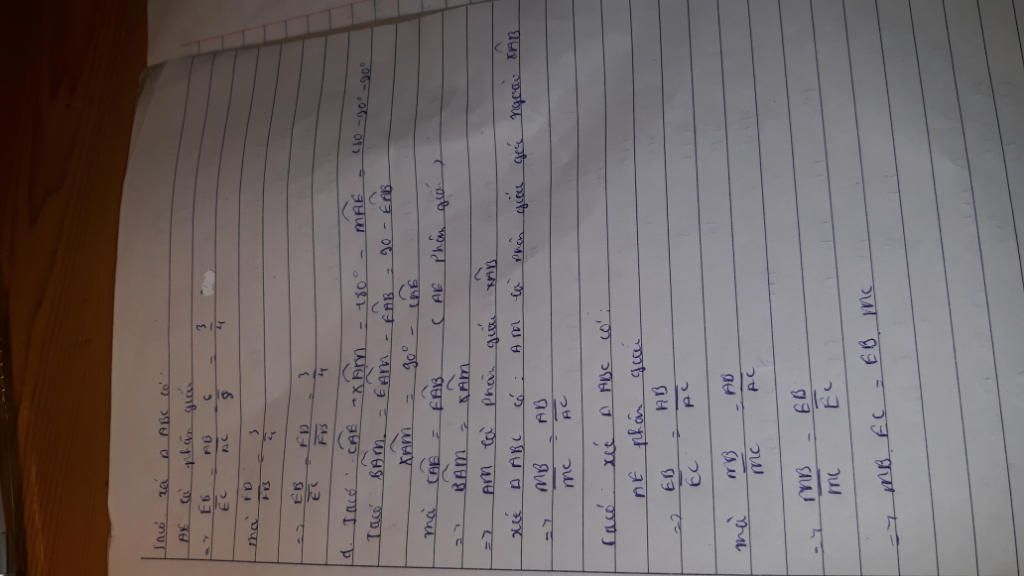 Taco xét Δ ABC có:
AE là phân giác
=> EB/EC = AB/AC = 6/8 = 3/4
mà FD/FB = 3/4
=> EB/EC = FD/FB = 3/4
d. Taco: CAE + XAM = 180° - MAE = 180 - 90° = 90°
Taco BAM = EAM - EAB = 90 - EAB
XAM = 90° - CAE
mà CAE = EAB ( AE phân giác )
=> BAM = XAM
=> AM là phân giác XAB
xét Δ ABC có: AM là phân giác góc ngoài
=> MB/MC = AB/AC
Taco xét Δ ABC có:
AE phân giác
=> EB/EC = AB/AC
mà MB/MC = AB/AC
=> MB/MC = EB/EC
=> MB. EC = EB. MC